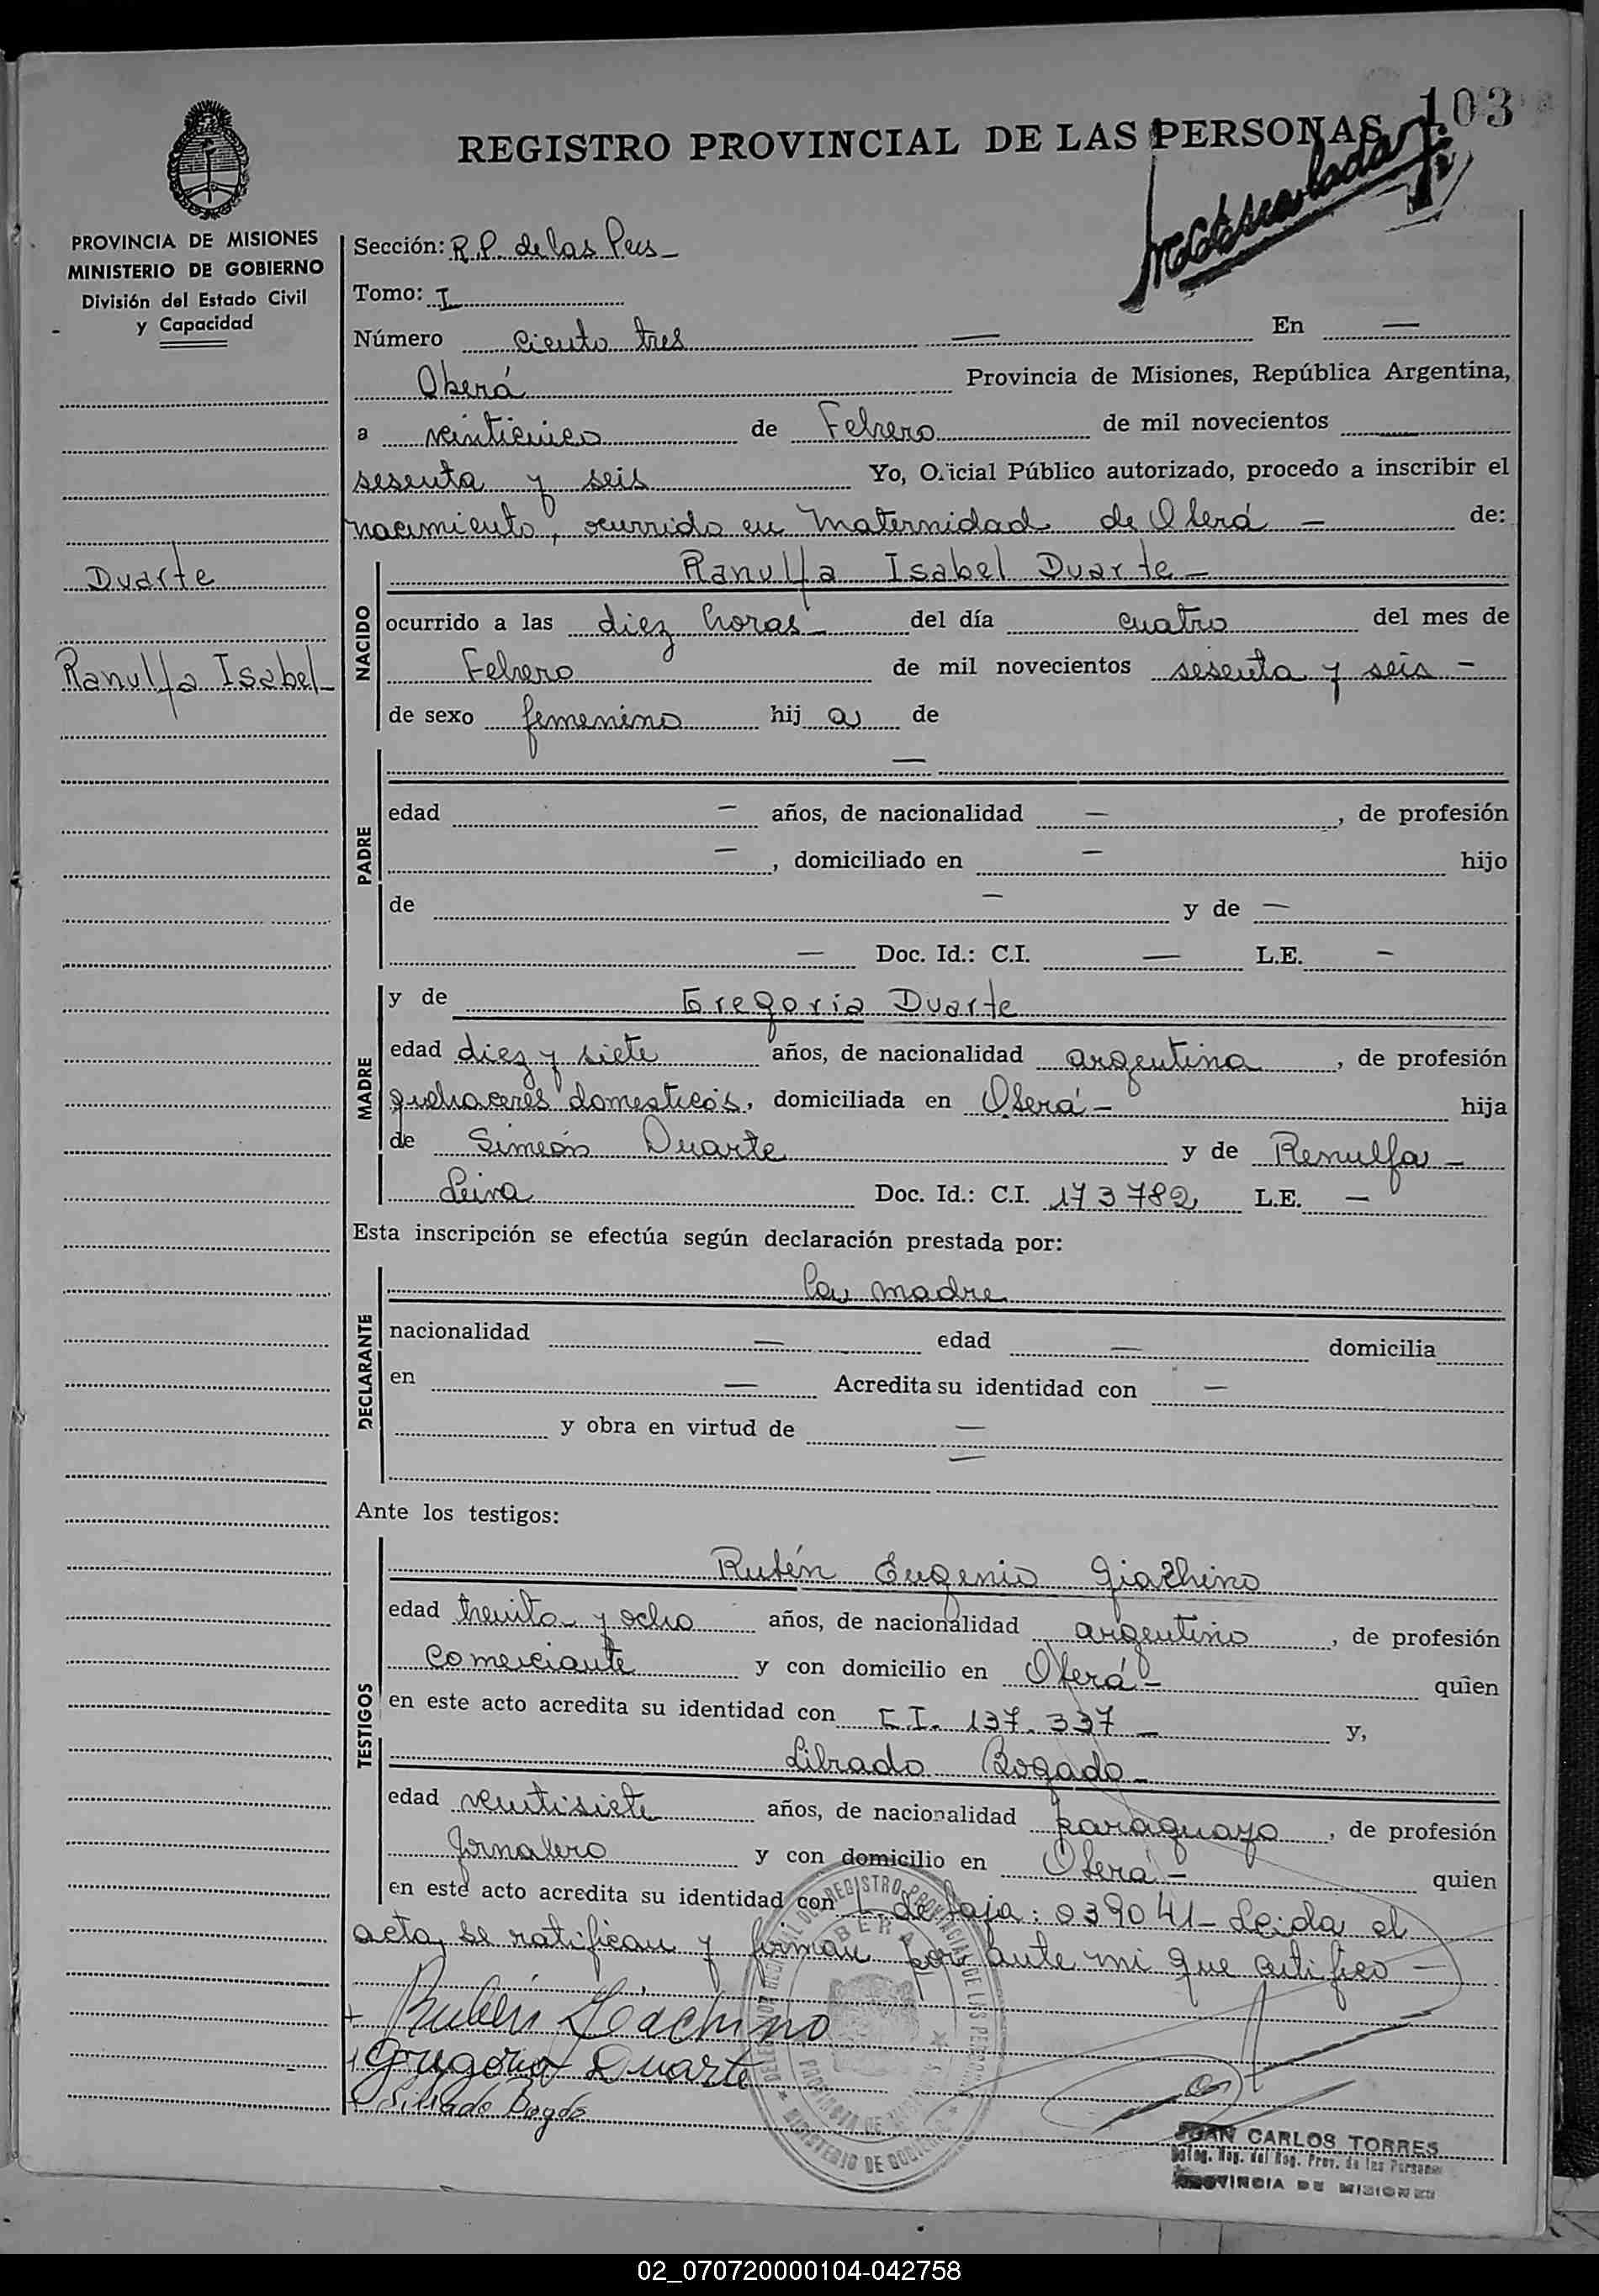 103
REGISTRO PROVINCIAL DE LAS PERSONAS
PROVINCIA DE MISIONES
MINISTERIO DE GOBIERNO
División del Estado Civil
y Capacidad
Duarte
Ranulfa Isabel
Sección: R.P. de las Pers
Tomo: I
Número ciento tres — En —
Oberá Provincia de Misiones, República Argentina,
a veinticinco de Febrero de mil novecientos
sesenta y seis Yo, Oficial Público autorizado, procedo a inscribir el
nacimiento, ocurrido en Maternidad de Oberá — de:
NACIDO
Ranulfa Isabel Duarte —
ocurrido a las diez horas — del día cuatro del mes de
Febrero de mil novecientos sesenta y seis —
de sexo femenino hij a de
PADRE
—
edad — años, de nacionalidad —, de profesión
—, domiciliado en — hijo
de — y de —
— Doc. Id.: C.I. — L.E. —
MADRE
y de Gregoria Duarte
edad diez y siete años, de nacionalidad argentina, de profesión
quehaceres domesticos, domiciliada en Oberá — hija
de Simeón Duarte y de Renulfa —
Leiva Doc. Id.: C.I. 173782 L.E. —
Esta inscripción se efectúa según declaración prestada por:
DECLARANTE
la madre
nacionalidad — edad — domicilia
en — Acredita su identidad con —
y obra en virtud de —
—
Ante los testigos:
TESTIGOS
Rubén Eugenio Giachino
edad treinta y ocho años, de nacionalidad argentino, de profesión
comerciante y con domicilio en Oberá — quien
en este acto acredita su identidad con C.I. 137.337 — y,
Librado Bogado —
edad veintisiete años, de nacionalidad paraguayo, de profesión
Jornalero y con domicilio en Oberá — quien
en este acto acredita su identidad con de Baja: 039041 — Leída el
acta, se ratifican y firman por ante mi que certifico —
Rubén Giachino
Gregoria Duarte
Librado Bogado
OBERA
MINISTERIO DE GOBIERNO
JUAN CARLOS TORRES
Deleg. Reg. del Reg. Prov. de las Personas
PROVINCIA DE MISIONES
02_070720000104-042758